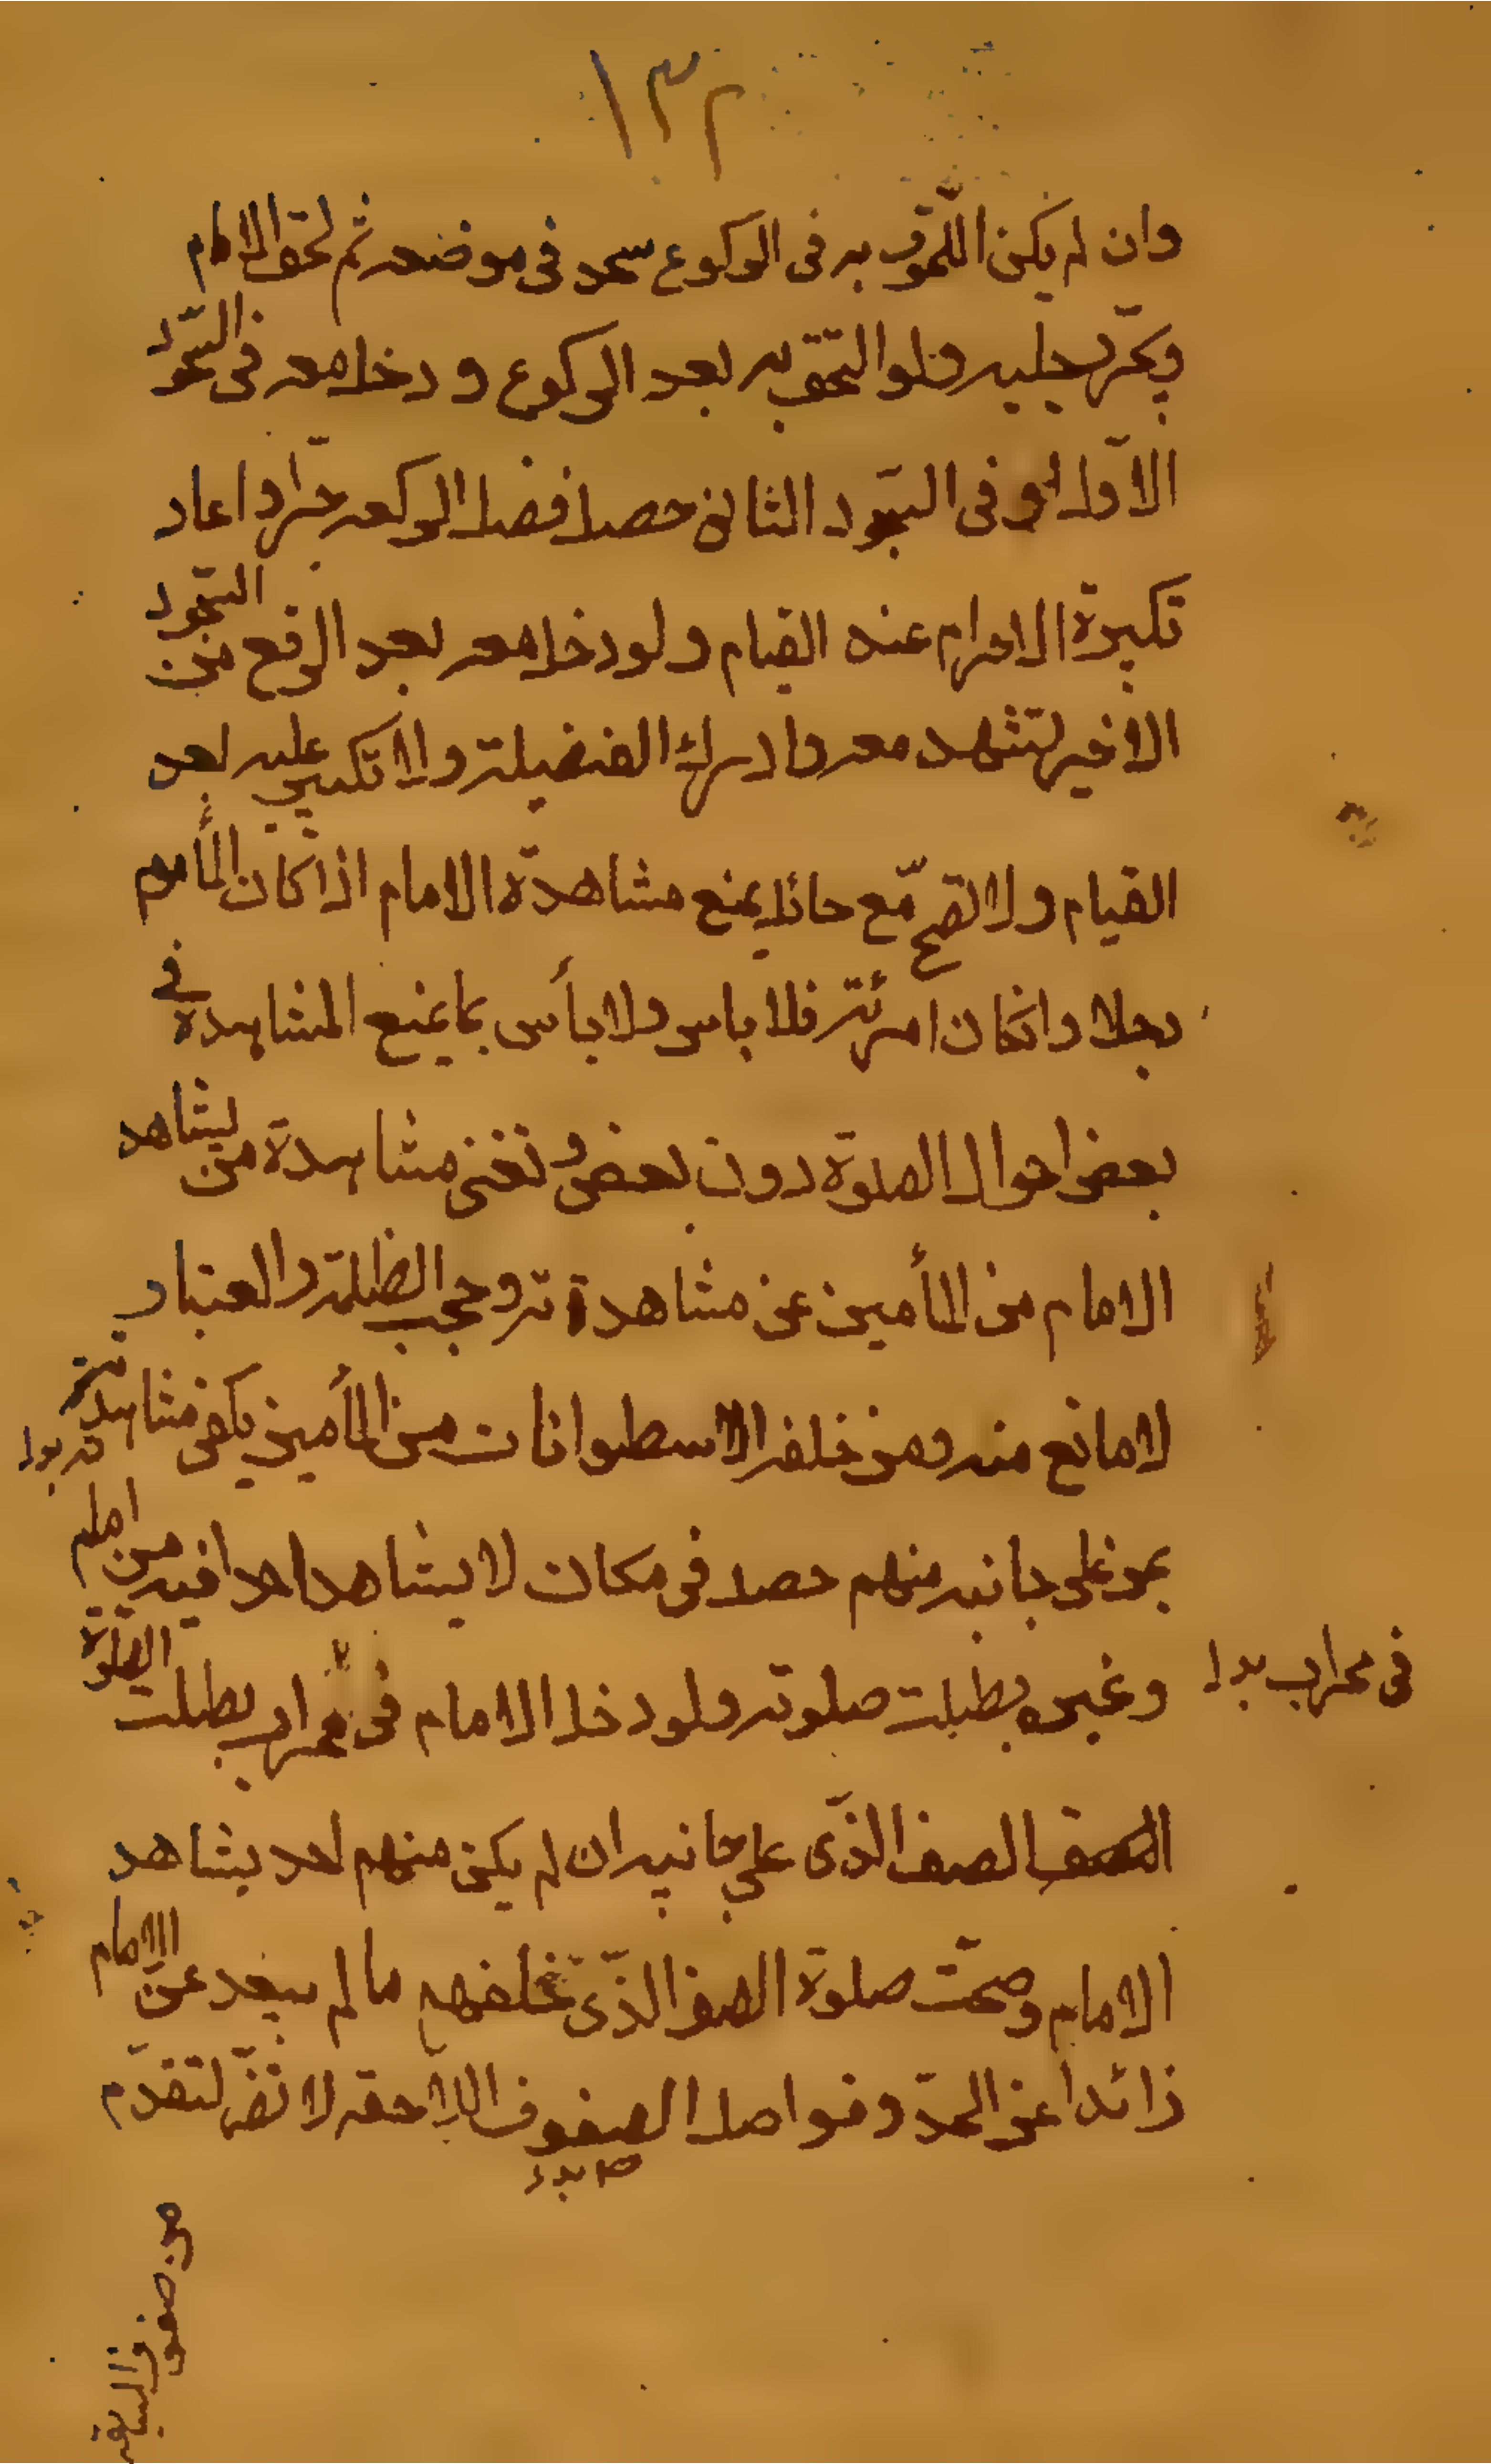 ١٣٢
وان لم يكن اللّحوق به فى الركوع سجد فى موضعه ثم لحق الامام
ويجرّ رجليه ولو التحق به بعد الركوع و دخل معه فى السّجود
الاوّل او فى السّجود الثانى حصل فضل الركعه جزّاء و اعاد
تكبيرة الاحرام عند القيام ولو دخل معه بعد الرفع من السّجود
الاخير تشهد معه وادرك الفضيلة ولا تكبير عليه بعد
القيام ولا تصحّ مع حائل يمنع مشاهدة الامام اذا كان المأموم
رجلا وان كان امرئة فلا باس ولا بأس بما يمنع المشاهدة فى
بعض احوال الصلوة دون بعض و تغنى مشاهدة من يشاهد
الامام من المأمين عن مشاهدته و حجب الظلمة والغبار
لا مانع منه ومن خلف الاسطوانات من المأمين يكفى مشاهدته
بمن على جانبه منهم حصل فى مكان لا يشاهد احدا فيه من امام
وغيره بطلت صلوته ولو دخل الامام فى محراب بطلت الصلوة
فى محراب بدل
الصف الذّى على جانبيه ان لم يكن منهم احد يشاهد
الامام وصحّت صلوة الصف الذّى خلفهم ما لم يبعد عن الامام
زائدا عن الحدّ و فواصل الصفوف اللاحقه لا تضّر لتقدّم
من صفوف السابقه